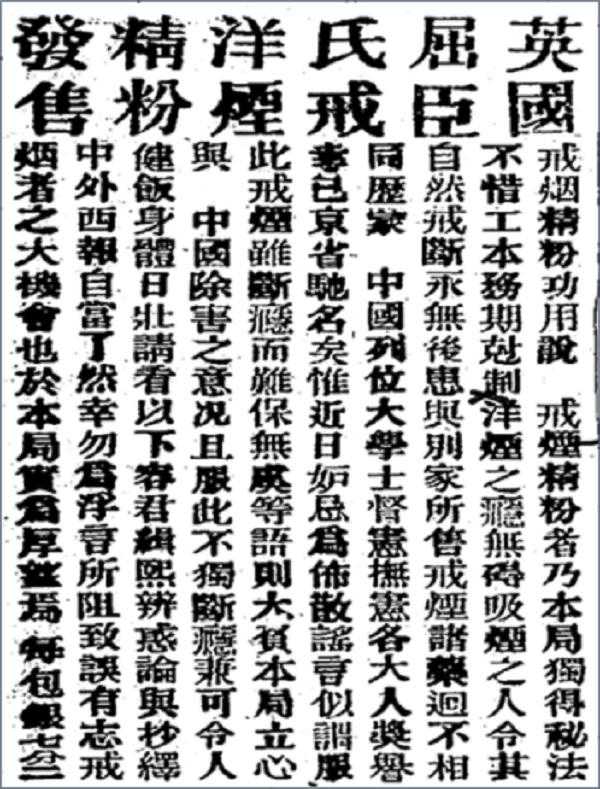 英國
屈臣
氏戒
洋煙
精粉
發售
戒烟精粉功用說 戒煙精粉者乃本局獨得秘法
不惜工本務期尅制洋煙之癮無碍吸煙之人令其
自然戒斷永無後患與別家所售戒煙諸藥迥不相
同歷蒙 中國列位大學士督憲撫憲各大人奬譽
奉已京省馳名矣惟近日妒忌爲佈散謠言似謂服
此戒煙雖斷癮而難保無戾等語則大負本局立心
與 中國除害之意况且服此不獨斷癮兼可令人
健飯身體日壯請看以下春君緝熙辨惑論與抄繹
中外西報自當了然幸勿爲浮言所阻致誤有志戒
烟者之大機會也於本局實爲厚望焉 每包銀七